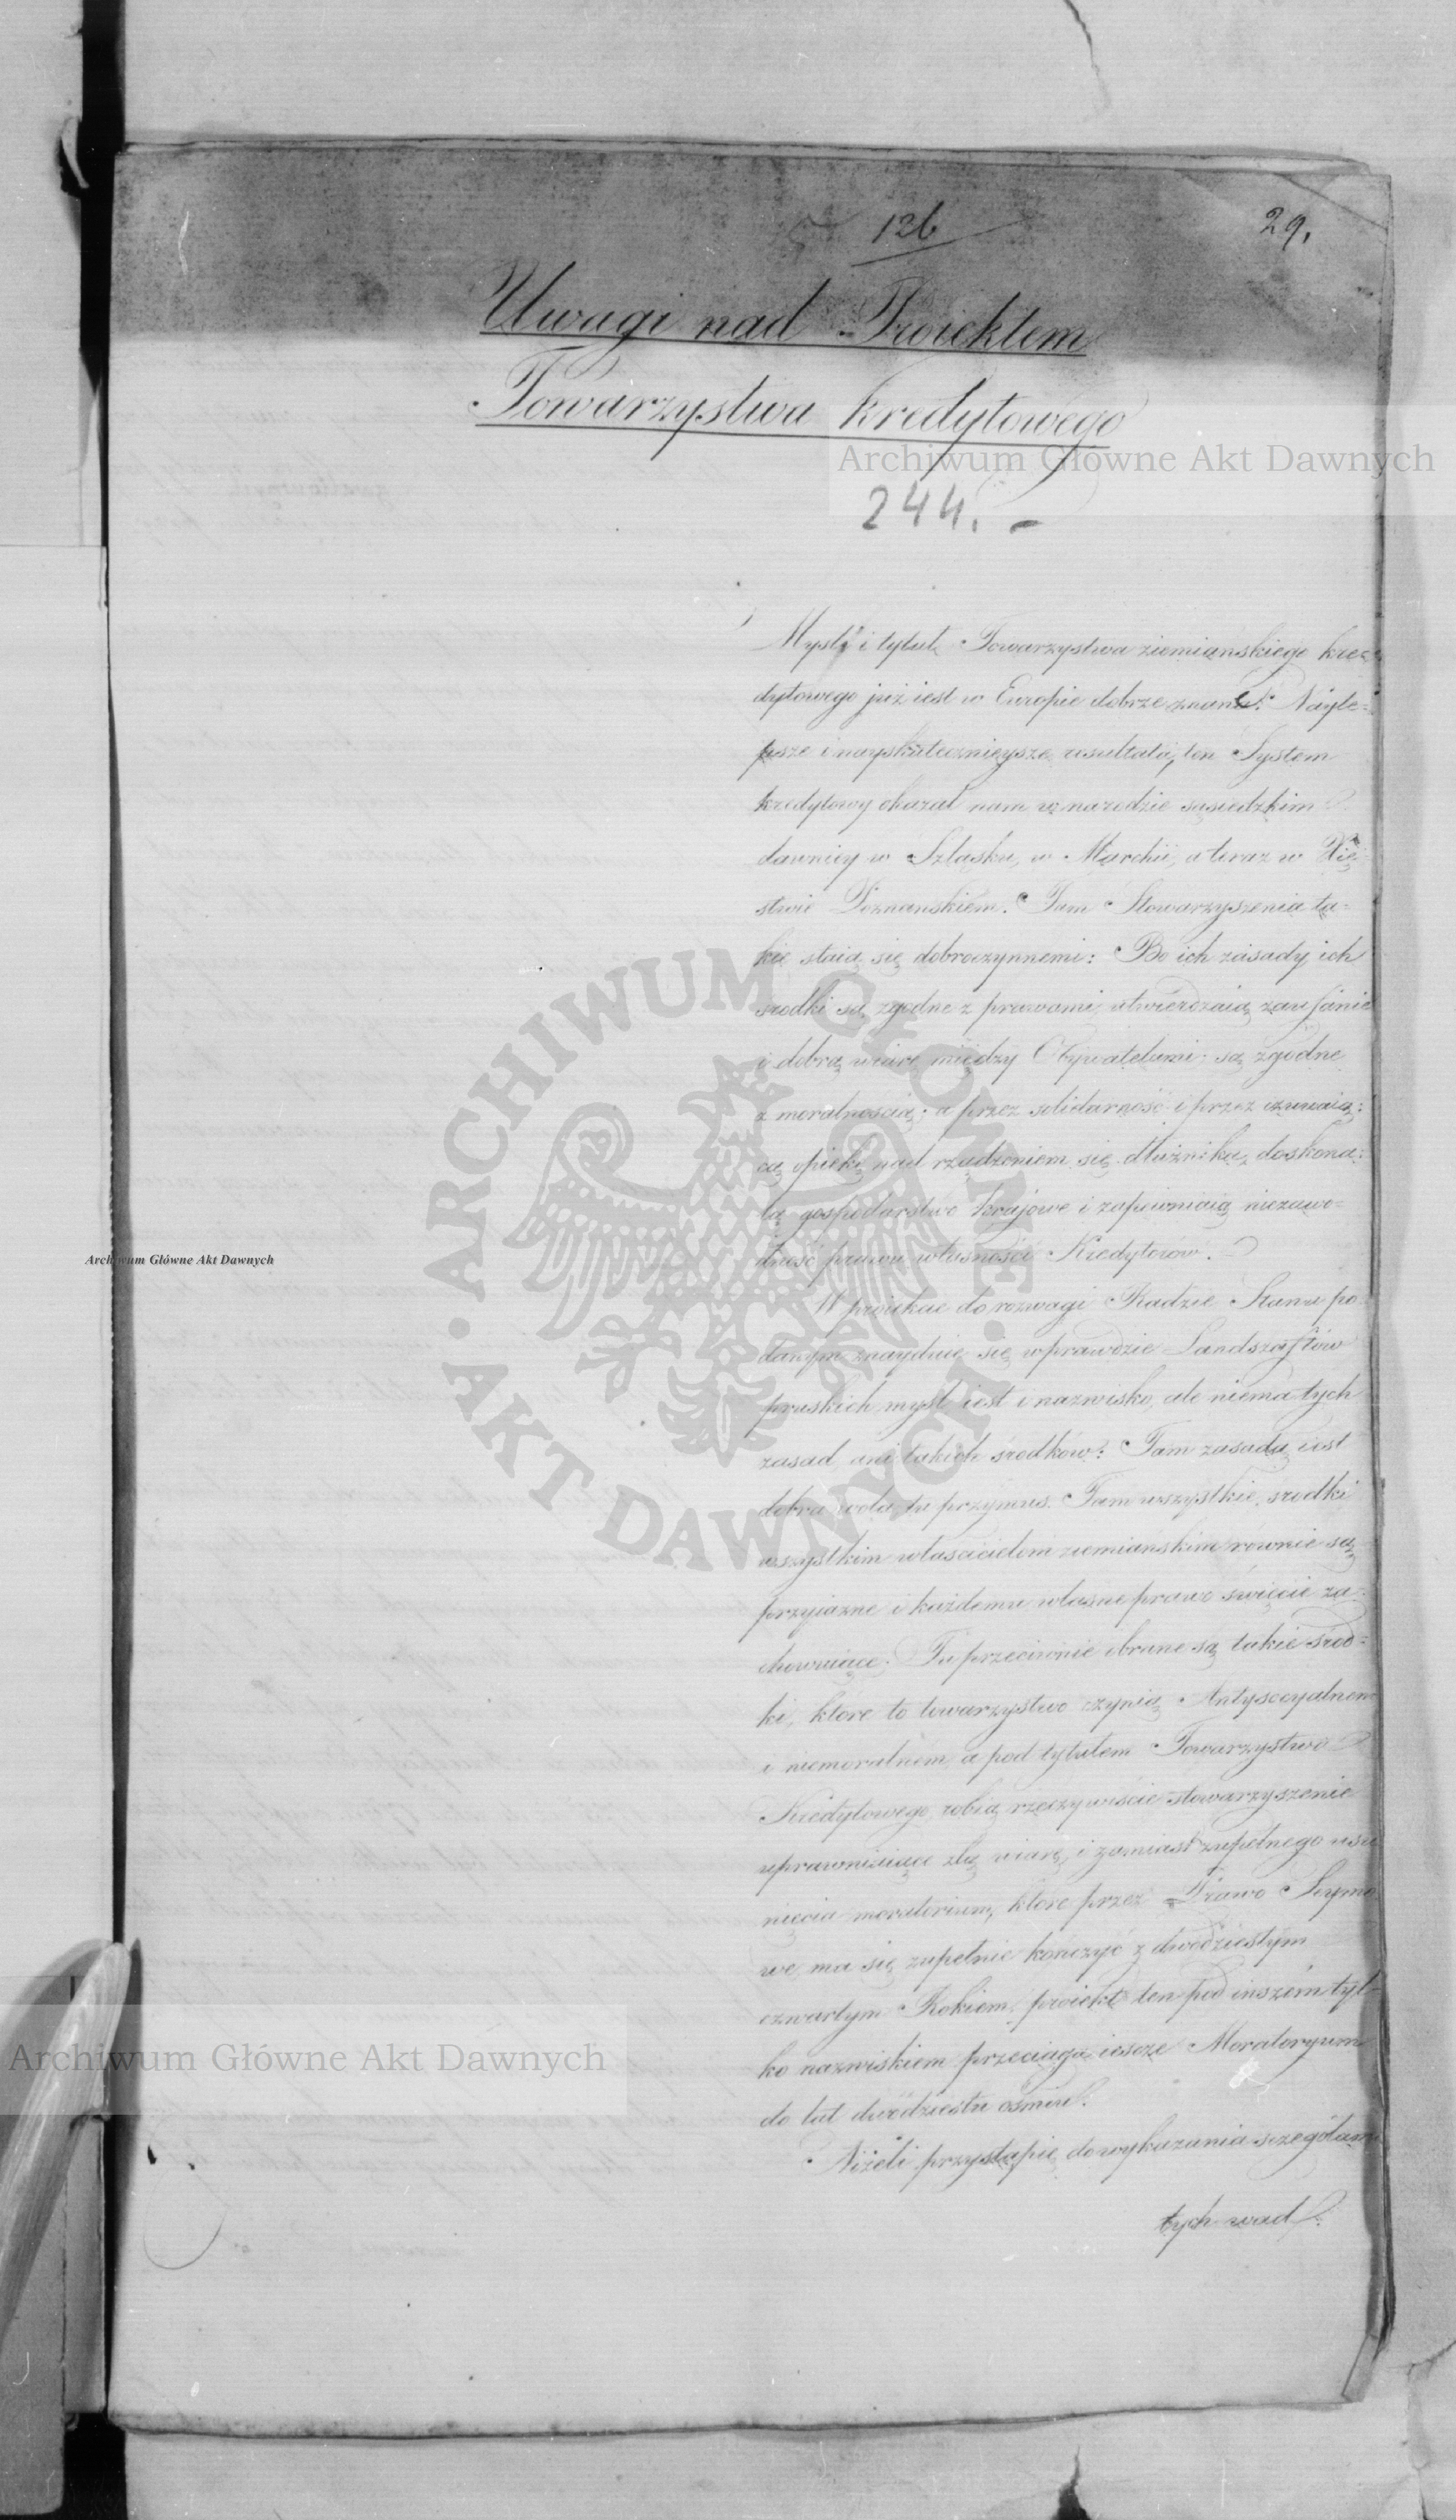 126
29.
Uwagi nad Proiektem
Towarzystwa Kredytowego
Archiwum Główne Akt Dawnych
244. -
Myśl i tytuł Towarzystwa ziemianskiego kre=
dytowego już iest w Europie dobrze znane. Nayle=
psze i nayskutecznieysze resultata, ten System
kredytowy okazał nam w narodzie sąsiedzkim
dawniey w Szląsku, w Marchii, a teraz w Xię
stwie Poznanskiem. Tam Stowarzyszenia ta=
kie staią się dobroczynnemi: Bo ich zasady, ich
srodki są zgodne z prawami, utwierdzaią zaufanie
i dobrą wiarę między Obywatelami; są zgodne
z moralnością; a przez solidarność i przez czuwaią=
cą opiekę nad rządzeniem się dłużnika, doskona=
lą gospodarstwo kraiowe i zapewniaią niezawo=
dność prawu własności Kredytorów.
W proiekcie do rozwagi Radzie Stanu po
danym znayduie się wprawdzie Landszaftów
pruskich myśl iest i nazwisko, ale niema tych
zasad ani takich środków: Tam zasadą iest
dobra wola, tu przymus. Tam wszystkie srodki
wszystkim właścicielom ziemiańskim równie są
przyiazne i każdemu własne prawo święcie za
chowuiące. Tu przeciwnie obrane są takie środ=
ki, które to towarzystwo czynią Antysocyalnem
i niemoralnem, a pod tytułem Towarzystwa
Kredytowego, robią rzeczywiście stowarzyszenie
uprawniaiące złą wiarę, i zamiast zupełnego usu
nięcia moratorium, które przez Prawo Seymo
we, ma się zupełnie kończyć z dwódziestym
czwartym Rokiem, proiekt ten pod inszém tyl=
ko nazwiskiem przeciąga iescze Moratoryum
do lat dwódziestu ośmiu.
Niżeli przystąpię do wykazania szczegółami
tych wad
ARCHIWUM GŁÓWNE AKT DAWNYCH
Archiwum Główne Akt Dawnych
Archiwum Główne Akt Dawnych